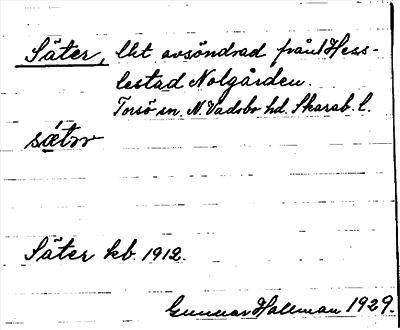 Säter, lht avsöndrad från 1 Hess-
lestad Nolgården.
Torsö sn. N. Vadsbo hd. Skarab. l.
sǽtər
Säter kb. 1912.
Gunnar Hallman 1929.